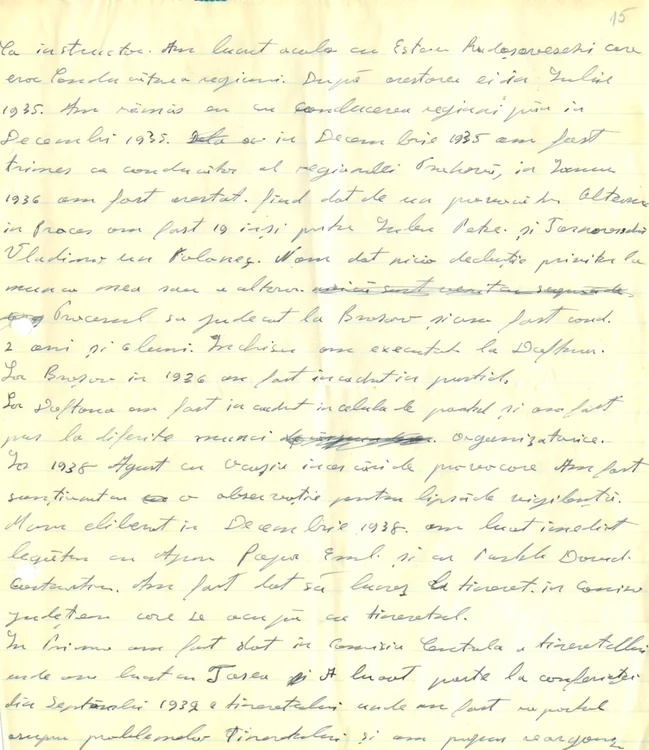 15
ca instructor. Am lucrat acolo cu Estera Radoșovețchi care
era Conducătoarea regiunii. După arestarea ei din Iulie
1935. Am rămas eu cu conducerea regiunii până in
Decembrie 1935. in Decembrie 1935 am fost
trimes ca conducător al regionalei Prahova, in Ianua
1936 am fost arestat. fiind dat de un provocator
in Proces am fost 19 inși printre Iuliu Petre. și
Vladimir un Polonez. Nam dat nicio declarație privitor la
munca mea sau a altora.
Procesul sa judecat la Brașov și am fost cond.
2 ani și 6 luni. Inchisoarea am executat la Doftana.
La Brașov in 1936 am fost incadrat in partid.
La Doftana am fost incadrat in celula de partid și am fost
pus la diferite munci organizatorice.
In 1938 August cu ocazia incercării de provocare Am fost
sancționat cu o observație pentru lipsă de vigilență.
Mam eliberat in Decembrie 1938. am luat imediat
legătura cu Apro Papa Emil. și cu David
Constantin. Am fost dat să lucrez la tineret. in Comisia
județeană care se ocupa cu tineretul.
In Primo am fost dat in comisia Centrala a tineretului
unde am lucrat cu Tarea și A luat parte la conferinței
din Septembrie 1939 a tineretului unde am fost raportul
asupra problemelor Tineretului și am propus reorganiz